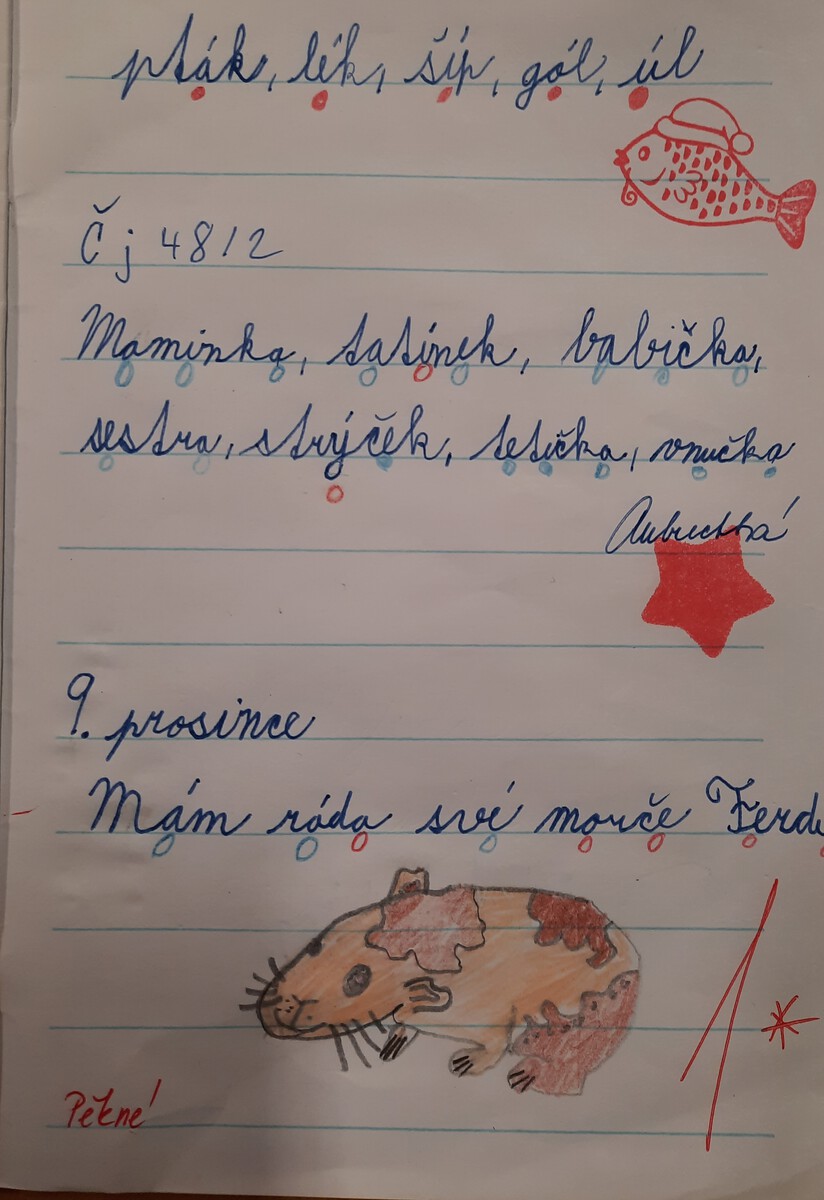 pták, lék, šíp, gól, úl
Čj 48/2
Maminka, tatínek, babička,
sestra, strýček, tetička, vnučka
9. prosince
Mám ráda své morče Ferdu
1*
Pěkné!